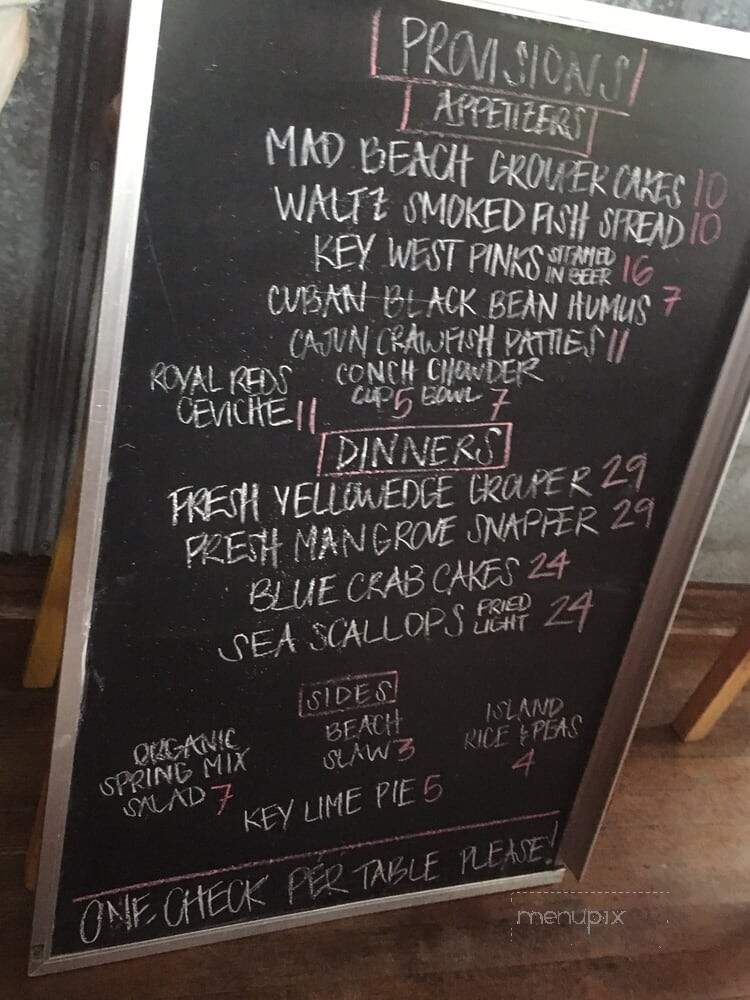 PROVISIONS
APPETIZERS
MAD BEACH GROUPER CAKES 10
WALTZ SMOKED FISH SPREAD 10
KEY WEST PINKS STEAMED IN BEER 16
CUBAN BLACK BEAN HUMUS 7
CAJUN CRAWFISH PATTIES 11
ROYAL REDS
CEVICHE 11
CONCH CHOWDER
CUP 5 BOWL 7
DINNERS
FRESH YELLOWEDGE GROUPER 29
FRESH MANGROVE SNAPPER 29
BLUE CRAB CAKES 24
SEA SCALLOPS FRIED LIGHT 24
SIDES
ORGANIC
SPRING MIX
SALAD 7
BEACH
SLAW 3
ISLAND
RICE & PEAS
4
KEY LIME PIE 5
ONE CHECK PER TABLE PLEASE!
menupix